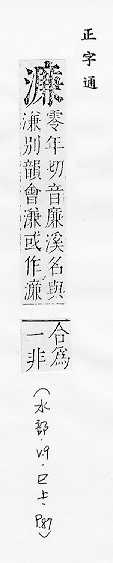 正字通
濂
零年切音廉溪名與
溓別韻會溓或作濂
合爲
一非
(水部·V.9·巳上·P.87)